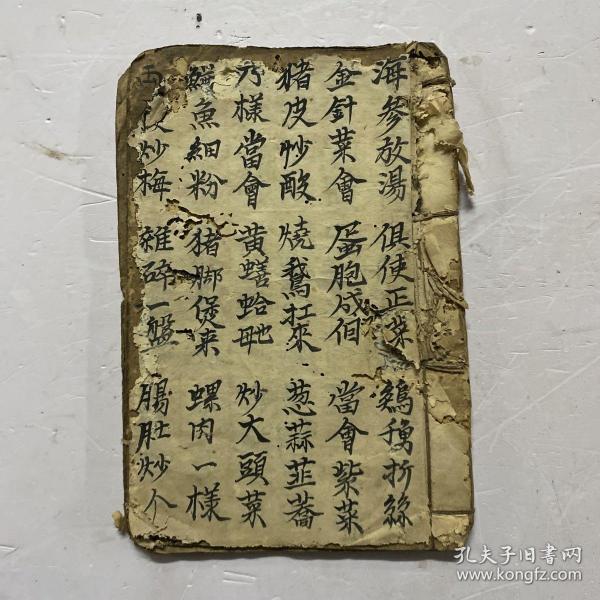 海參放湯 俱使正菜 鷄 折絲
金針菜會 蛋胞成 當會紫菜
猪皮炒酸 燒鵝扛來 葱蒜韮蕎
樣當會 黄蟮蛤 炒大頭菜
魚細粉 猪脚煲来 螺肉一樣
炒梅 雜碎一盤 腸肚炒个
孔夫子旧书网
www.kongfz.com